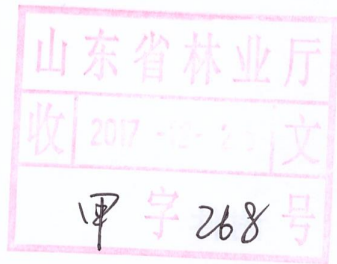 山东省林业厅
收 2017 -12- 2 文
甲 字 268 号